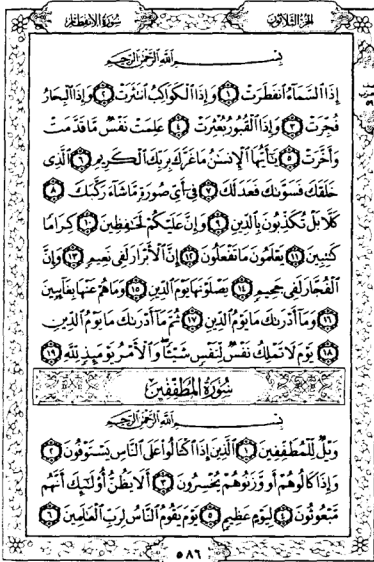 سُورَةُ الانفِطَار الجُزْءُ الثَّلَاثُونَ
بِسْمِ اللَّهِ الرَّحْمَٰنِ الرَّحِيمِ
إِذَا السَّمَاءُ انفَطَرَتْ ١ وَإِذَا الْكَوَاكِبُ انتَثَرَتْ ٢ وَإِذَا الْبِحَارُ
فُجِّرَتْ ٣ وَإِذَا الْقُبُورُ بُعْثِرَتْ ٤ عَلِمَتْ نَفْسٌ مَّا قَدَّمَتْ
وَأَخَّرَتْ ٥ يَٰأَيُّهَا الْإِنسَٰنُ مَا غَرَّكَ بِرَبِّكَ الْكَرِيمِ ٦ الَّذِى
خَلَقَكَ فَسَوَّىٰكَ فَعَدَلَكَ ٧ فِى أَىِّ صُورَةٍ مَّا شَاءَ رَكَّبَكَ ٨
كَلَّا بَلْ تُكَذِّبُونَ بِالدِّينِ ٩ وَإِنَّ عَلَيْكُمْ لَحَٰفِظِينَ ١٠ كِرَامًا
كَٰتِبِينَ ١١ يَعْلَمُونَ مَا تَفْعَلُونَ ١٢ إِنَّ الْأَبْرَارَ لَفِى نَعِيمٍ ١٣ وَإِنَّ
الْفُجَّارَ لَفِى جَحِيمٍ ١٤ يَصْلَوْنَهَا يَوْمَ الدِّينِ ١٥ وَمَا هُمْ عَنْهَا بِغَائِبِينَ
١٦ وَمَا أَدْرَىٰكَ مَا يَوْمُ الدِّينِ ١٧ ثُمَّ مَا أَدْرَىٰكَ مَا يَوْمُ الدِّينِ
١٨ يَوْمَ لَا تَمْلِكُ نَفْسٌ لِّنَفْسٍ شَيْـًٔا وَالْأَمْرُ يَوْمَئِذٍ لِّلَّهِ ١٩
سُورَةُ المُطَفِّفِينَ
بِسْمِ اللَّهِ الرَّحْمَٰنِ الرَّحِيمِ
وَيْلٌ لِّلْمُطَفِّفِينَ ١ الَّذِينَ إِذَا اكْتَالُوا عَلَى النَّاسِ يَسْتَوْفُونَ ٢
وَإِذَا كَالُوهُمْ أَو وَّزَنُوهُمْ يُخْسِرُونَ ٣ أَلَا يَظُنُّ أُولَٰئِكَ أَنَّهُم
مَّبْعُوثُونَ ٤ لِيَوْمٍ عَظِيمٍ ٥ يَوْمَ يَقُومُ النَّاسُ لِرَبِّ الْعَٰلَمِينَ ٦
٥٨٦